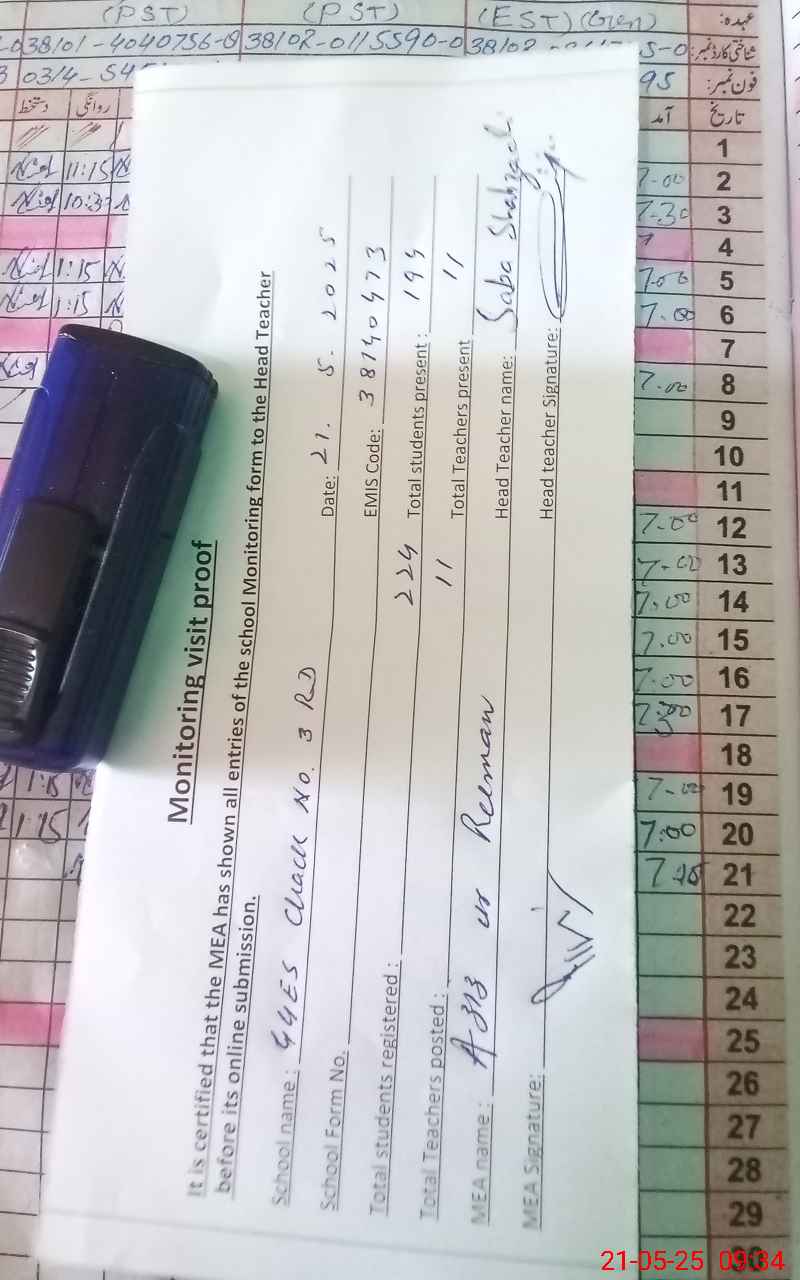 (PST) (PST) (EST)(Gen) عہدہ:
38101-4040756-8 38102-0115590-0 38102 5-0 شناختی کارڈ نمبر:
0314-545 95 فون نمبر:
دستخط روانگی آمد تاریخ
Monitoring visit proof
It is certified that the MEA has shown all entries of the school Monitoring form to the Head Teacher
before its online submission.
School name: GGES Chack No. 3 RD Date: 21. 5. 2025
School Form No. EMIS Code: 38140473
Total students registered: 224 Total students present: 194
Total Teachers posted: 11 Total Teachers present 11
MEA name: ur Rehman Head Teacher name: Saba Shahzadi
MEA Signature: Head teacher Signature:
1
11:15 7-00 2
10:3 7-30 3
4
1:15 7-00 5
1:15 7.00 6
7
7.00 8
9
10
11
7-00 12
7-00 13
7.00 14
7.00 15
7.00 16
17
18
1:15 7-00 19
1:15 7:00 20
7 15 21
22
23
24
25
26
27
28
29
30
21-05-25 09:34